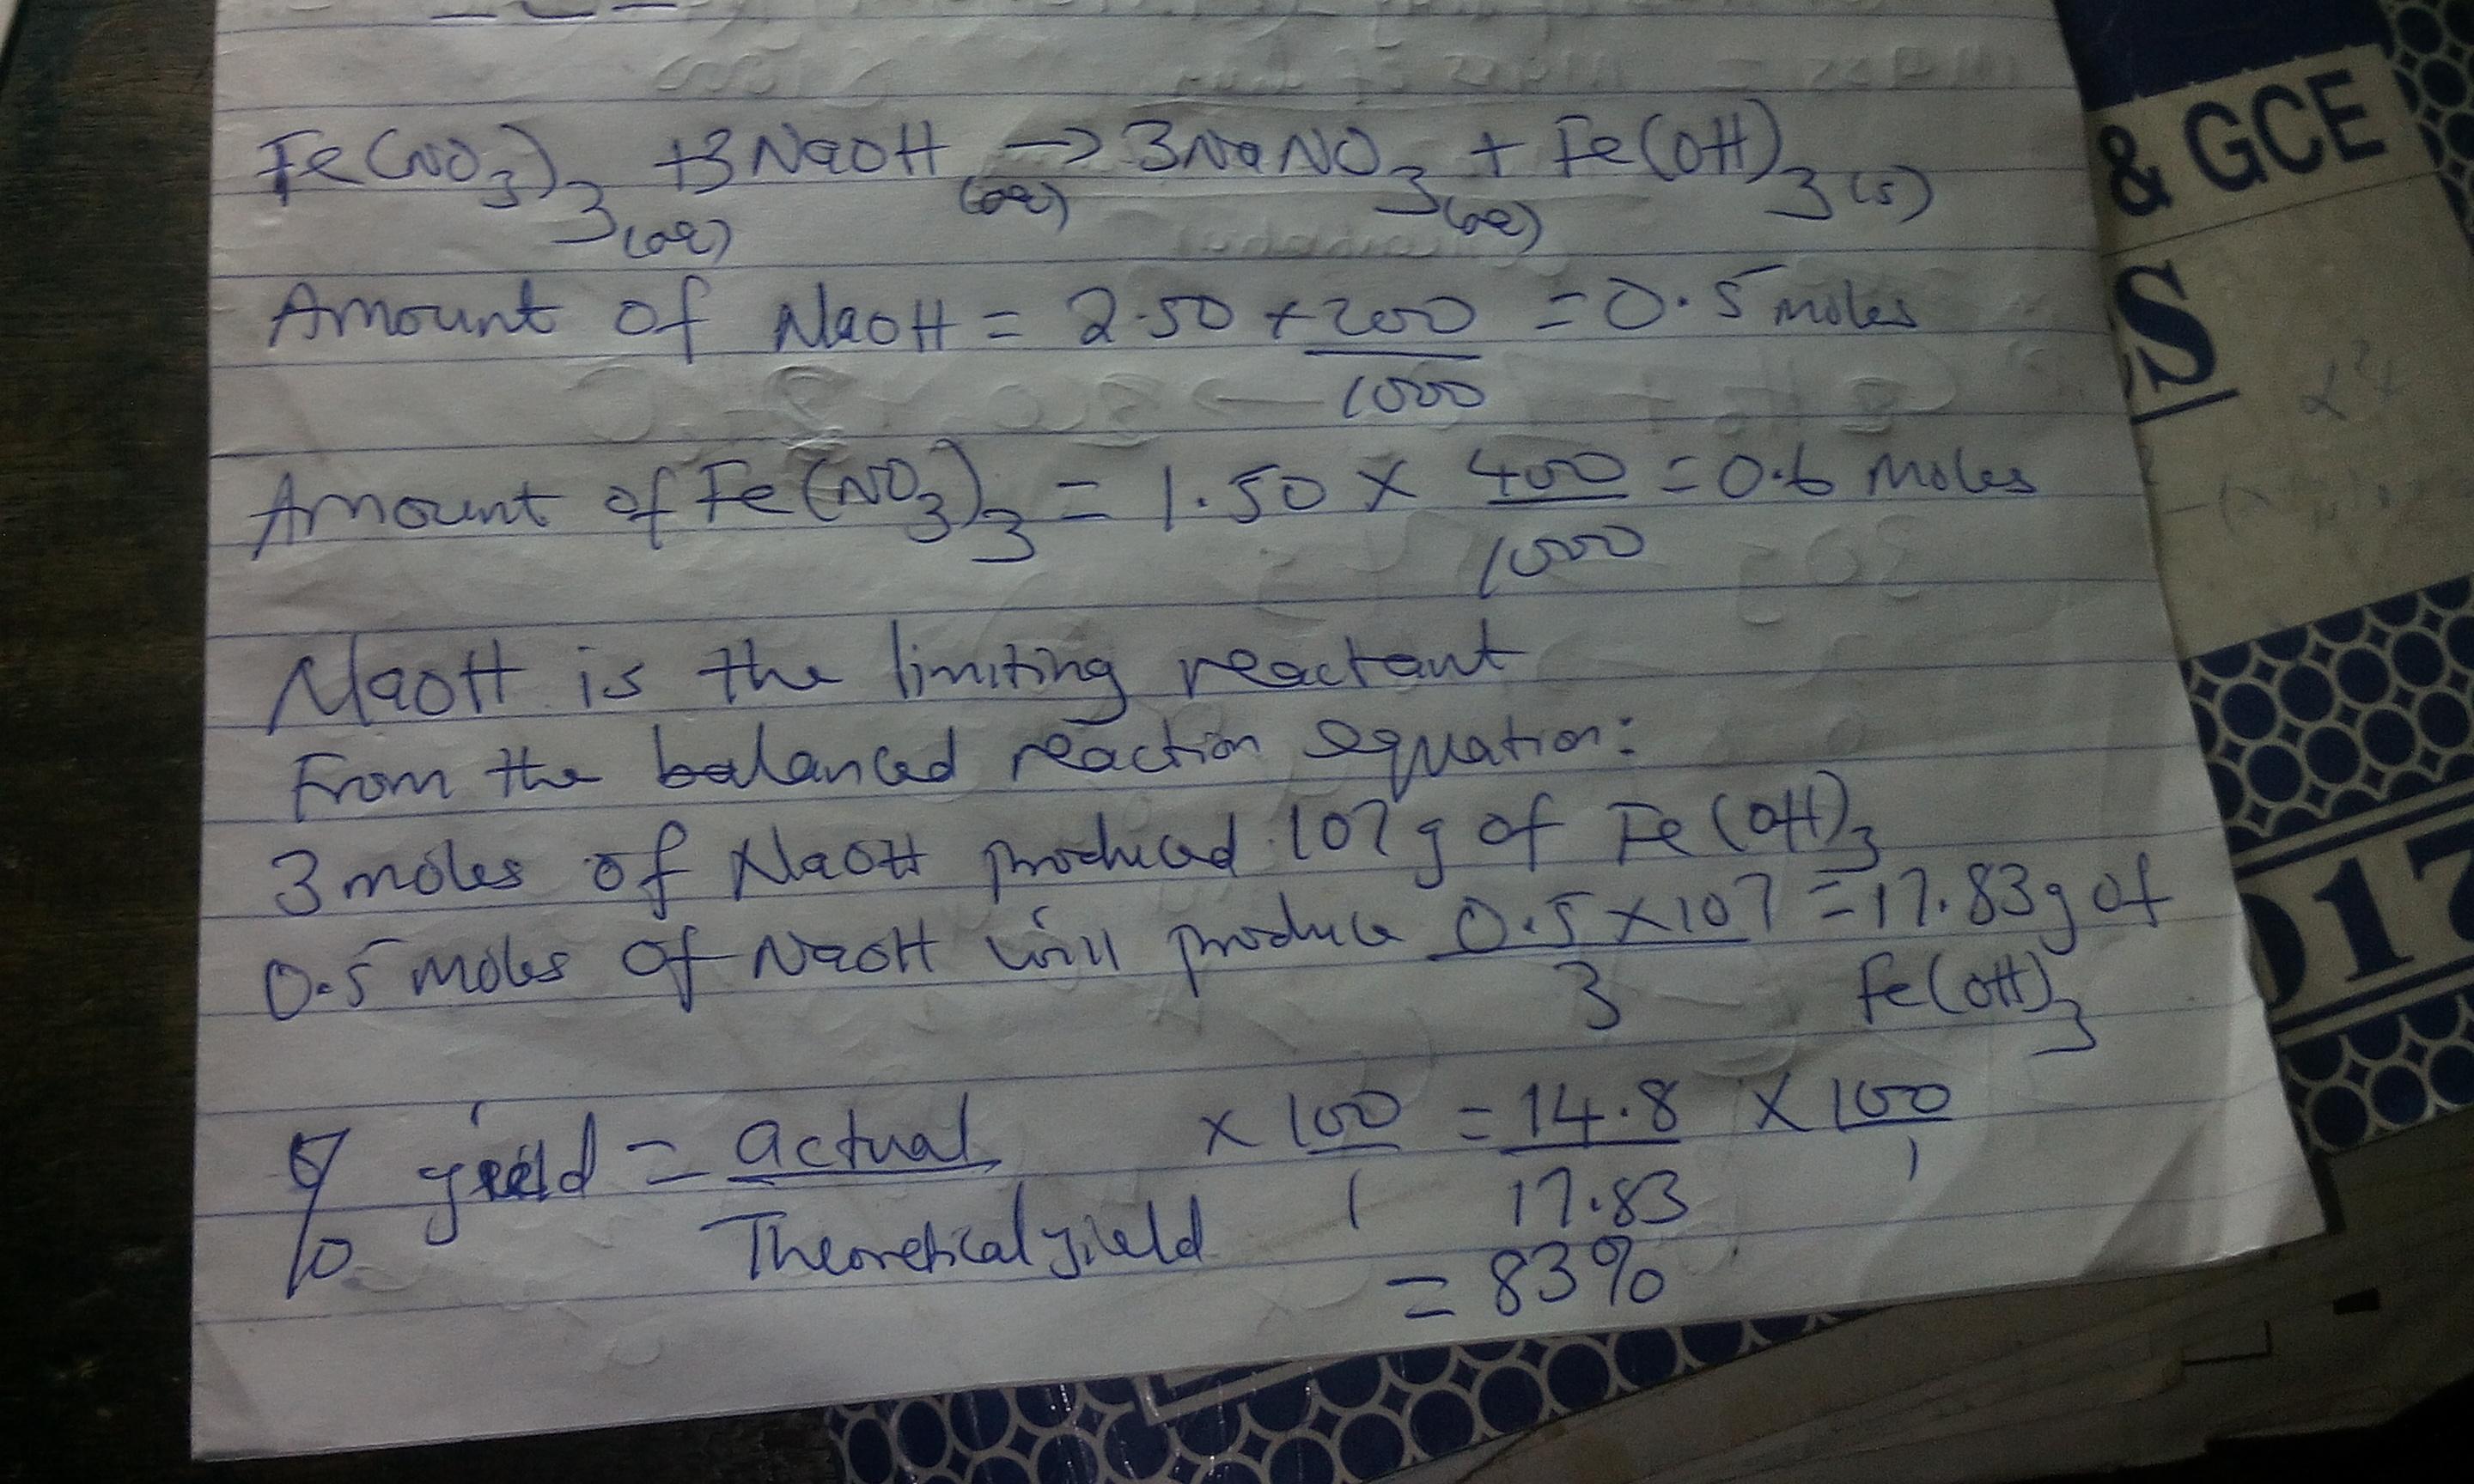 Fe(NO3)3(aq) +3NaOH(aq) → 3NaNO3(aq) + Fe(OH)3(s)
Amount of NaOH = 2.50 × 200/1000 = 0.5 moles
Amount of Fe(NO3)3 = 1.50 × 400/1000 = 0.6 Moles
NaOH is the limiting reactant
From the balanced reaction equation:
3 moles of NaOH produced 107g of Fe(OH)3
0.5 moles of NaOH will produce 0.5 × 107/3 = 17.83g of Fe(OH)3
% yield = actual/Theoretical yield × 100/1 = 14.8/17.83 × 100/1
= 83%
& GCE
S
017